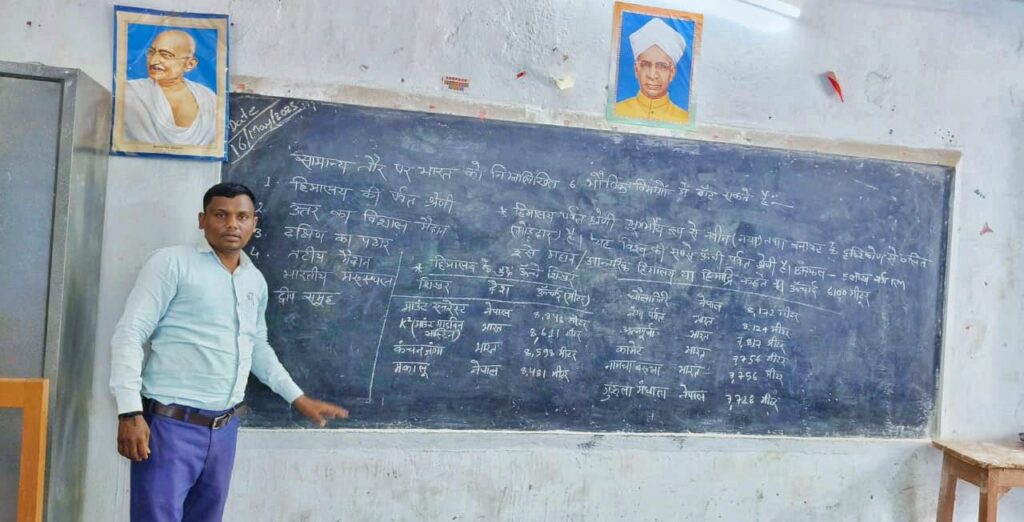 Date
16/May/2025
सामान्य तौर पर भारत को निम्नलिखित 6 भौतिक विभागों में बाँट सकते है:-
1. हिमालय की पर्वत श्रेणी
2. उत्तर का विशाल मैदान
3. दक्षिण का पठार
4. तटीय मैदान
भारतीय मरुस्थल
द्वीप समूह
* हिमालय पर्वत श्रेणी रूप से नवीन (नया) तथा बनावट के दृष्टिकोण से वलित
(मोड़दार) है। यह विश्व की सबसे ऊंची पर्वत श्रेणी है।
इसे महान/आन्तरिक हिमालय या हिमाद्रि कहते है। ऊंचाई 6100 मीटर
* हिमालय के कुछ ऊंचे शिखर
शिखर देश ऊंचाई (मीटर)
माउंट एवरेस्ट नेपाल 8,848 मीटर
K² (माउंट गाडविन आस्टिन) भारत 8,611 मीटर
कंचनजंगा भारत 8,598 मीटर
मकालू नेपाल 8,481 मीटर
धौलागिरी नेपाल 8,172 मीटर
नंगा पर्वत भारत 8,124 मीटर
भारत 7,817 मीटर
कामेट भारत 7756 मीटर
नामचा बरवा भारत 7756 मीटर
गुरुला मंधाता नेपाल 7,728 मीटर